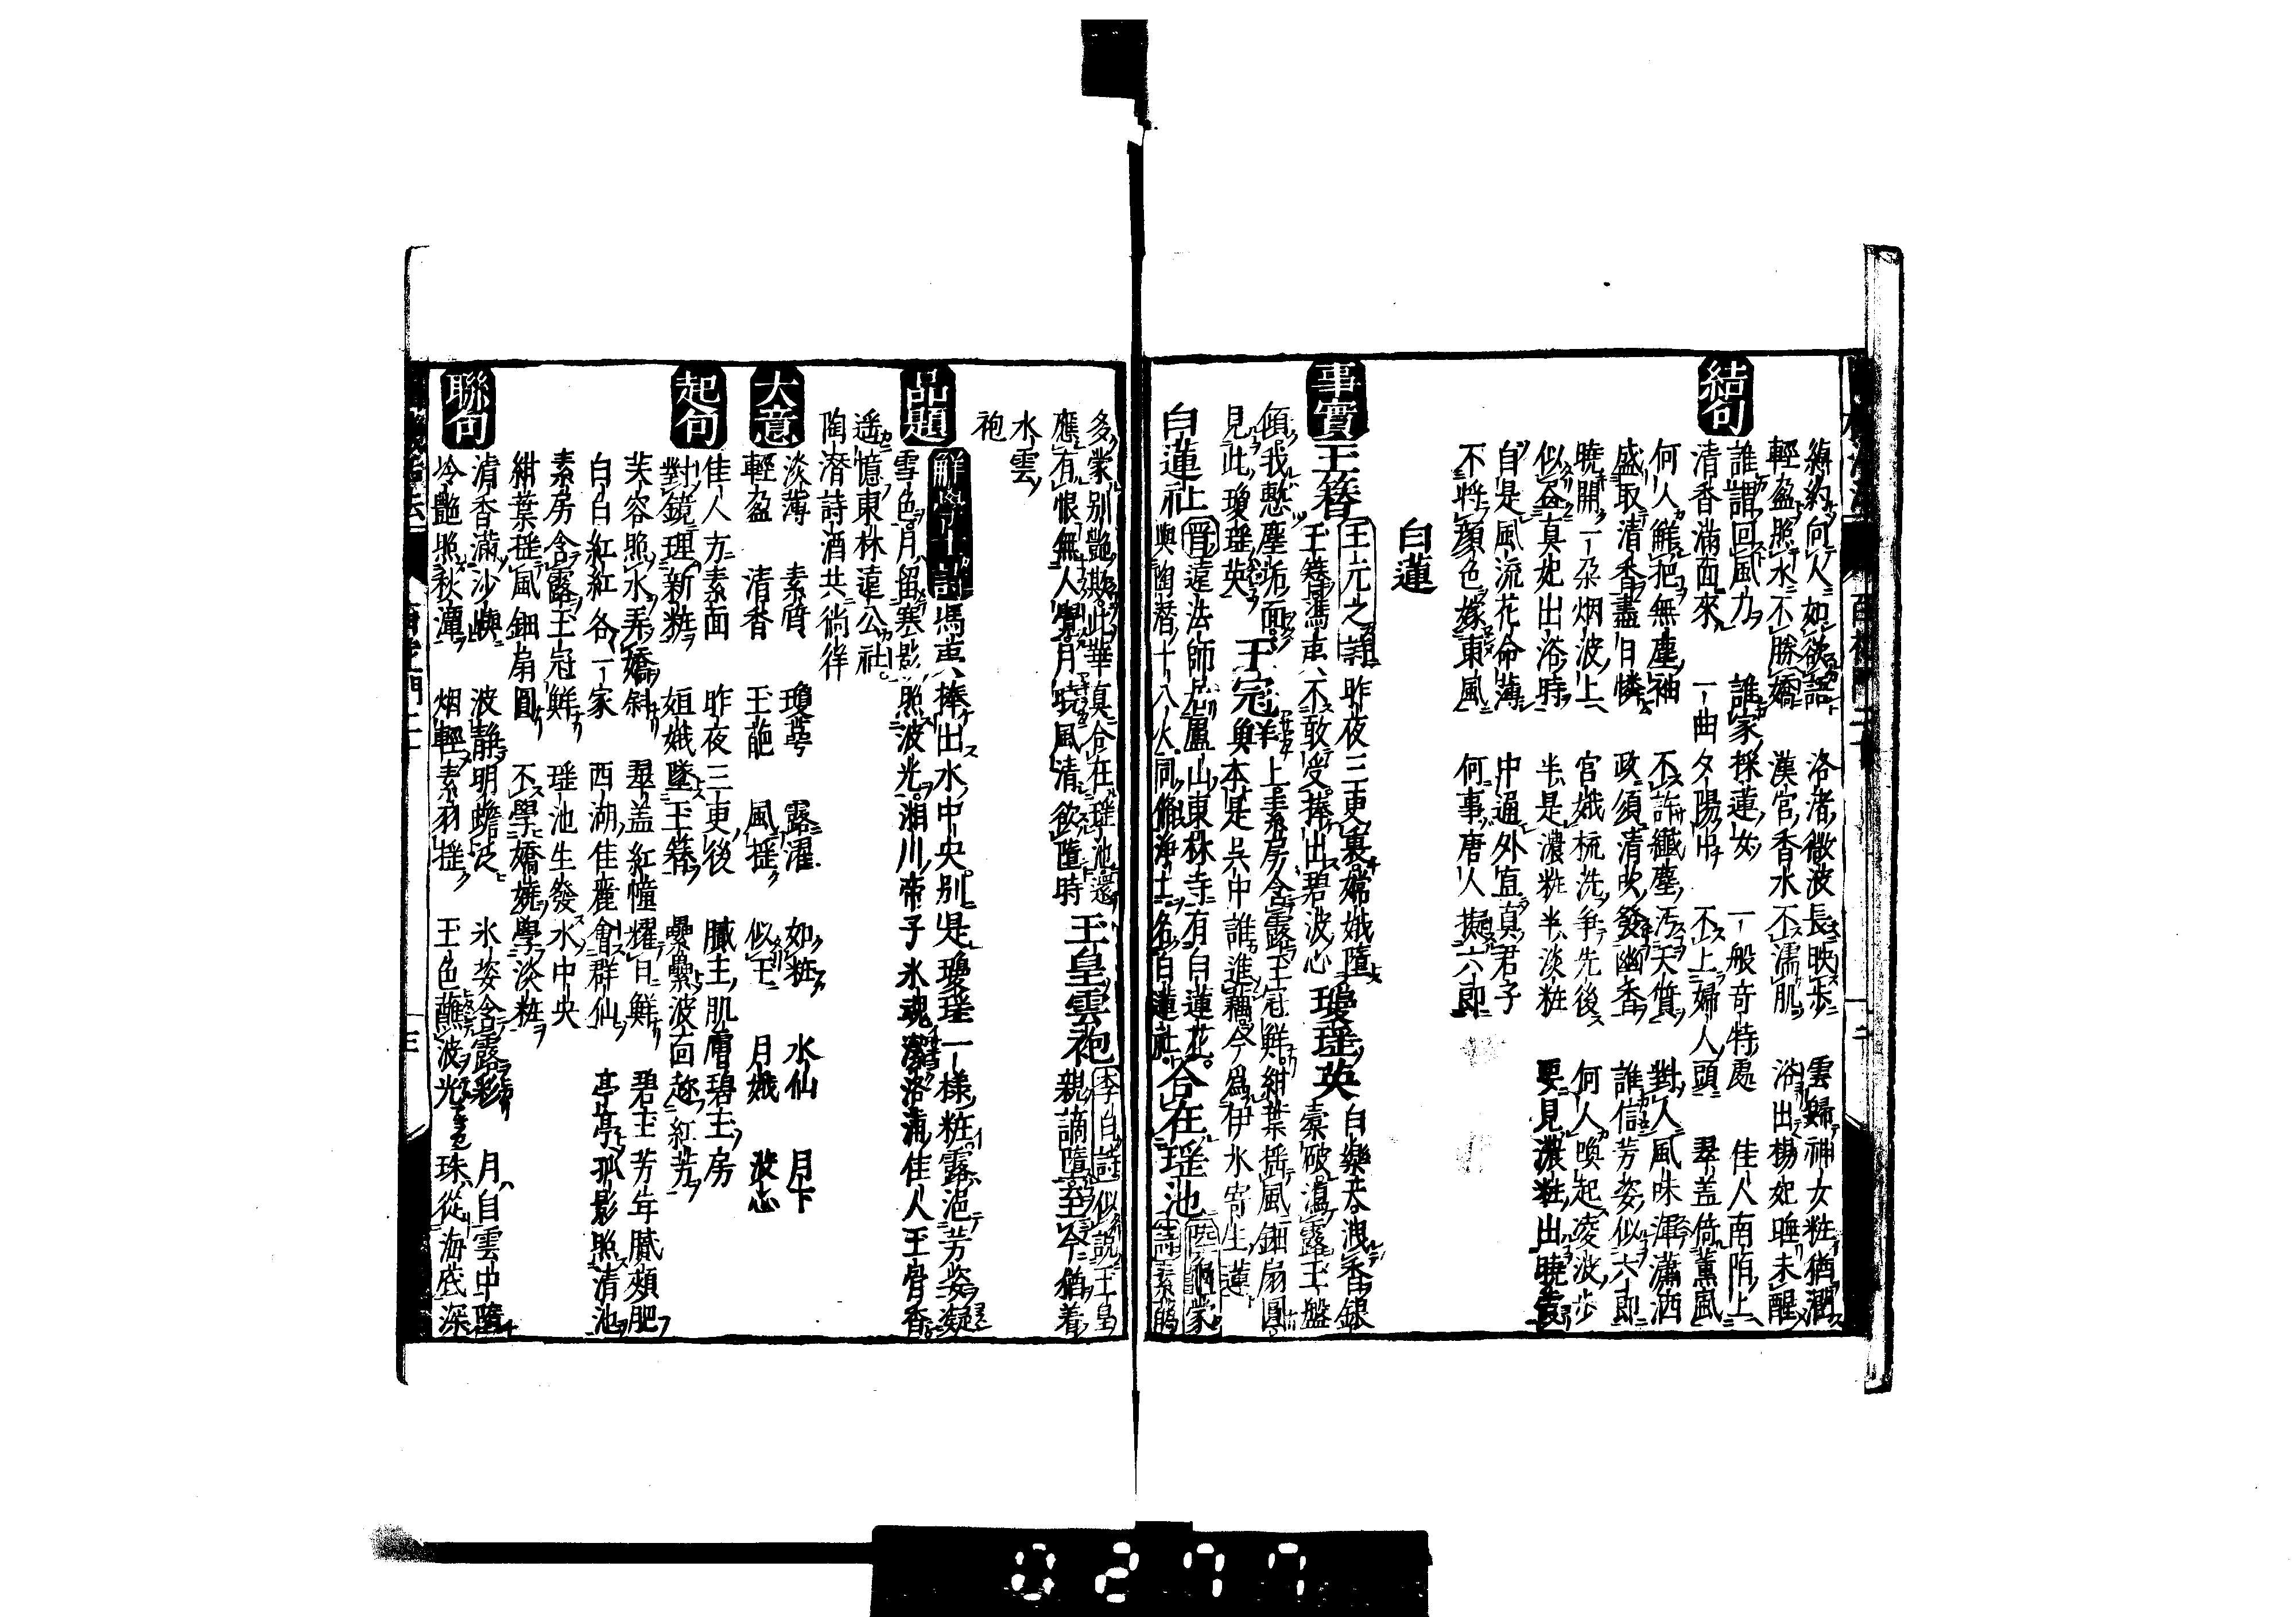 綽約向人如欲語 洛渚微波長映步 雲歸神女粧猶濕
輕盈照水不勝嬌 漢宮香水不濡肌 浴出楊妃睡未醒
結句
誰謂回風力 誰家採蓮女 一般奇特處 佳人南陌上
清香滿面來 一曲夕陽中 不上婦人頭 翠盖倚薰風
何人解把無塵袖 不許纖塵汚天質 對人風味渾瀟洒
盛取清香盡日憐 政須清吹發幽香 誰信芳姿似六郎
曉開一朶烟波上 宮娥梳洗爭先後 何人喚起凌波步
似画真妃出浴時 半是濃粧半淡粧 要見濃粧出曉
自是風流花命薄 中通外直真君子
不將顏色嫁東風 何事唐人擬六郎
白蓮
事實
玉簪 王元之詩 昨夜三更裏嫦娥墮
玉簪馮夷不敢受捧出碧波心 瓊瑶英 白樂天洩香銀
囊破瀉露玉盤
傾我慙塵垢面
見此瓊瑶英 玉冠鮮 上素房含露玉冠鮮紺葉摇風鈿扇圓
與本是吳中誰進藕今爲伊水寄生蓮
白蓮社 晋遠法師居廬山東林寺有白蓮花
與陶潜十八人同修淨土名白蓮社 合在瑶池 陸龜蒙
詩素蘤
多蒙别艶欺此華真合在瑶池還
應有恨無人覺月曉風清欲墮時 玉皇雲袍 李白詩似說玉皇
親謫墮至今猶着
水雲
袍
品題
解學士詩 馮夷捧出水中央別是瓊瑶一様粧露浥芳姿凝
雪色月留寒影照波光湘川帝子氷魂潔洛浦佳人玉骨香
遥憶東林遠公社
陶潜詩酒共徜徉
大意
淡薄 素質 瓊萼 露濯 如粧 水仙 月下
輕盈 清香 玉葩 風摇 似玉 月娥 波心
起句
佳人方素面 昨夜三更後 膩玉肌膚碧玉房
對鏡理新粧 姮娥墜玉簪 纍纍波面趂紅芳
芙容照水弄嬌斜 翠盖紅幢耀日鮮 碧玉芳年膩頰肥
白白紅紅各一家 西湖佳麗會群仙 亭亭孤影照清池
素房含露玉冠鮮 瑶池生發水中央
紺葉摇風鈿扇圓 不學嬌嬈學淡粧
聯句
清香滿沙嶼 波静明蟾泛 氷姿含露彩 月自雲中墮
冷艶照秋潭 烟輕素羽摇 玉色蘸波光 珠從海底深